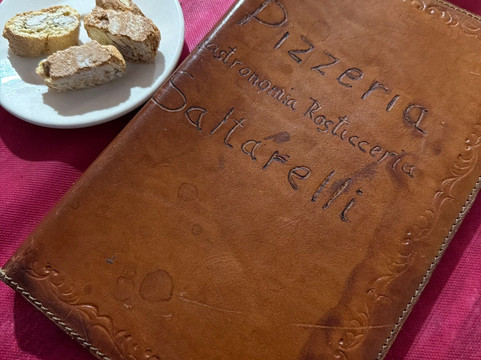 Pizzeria
Gastronomia Rosticceria
Saltarelli